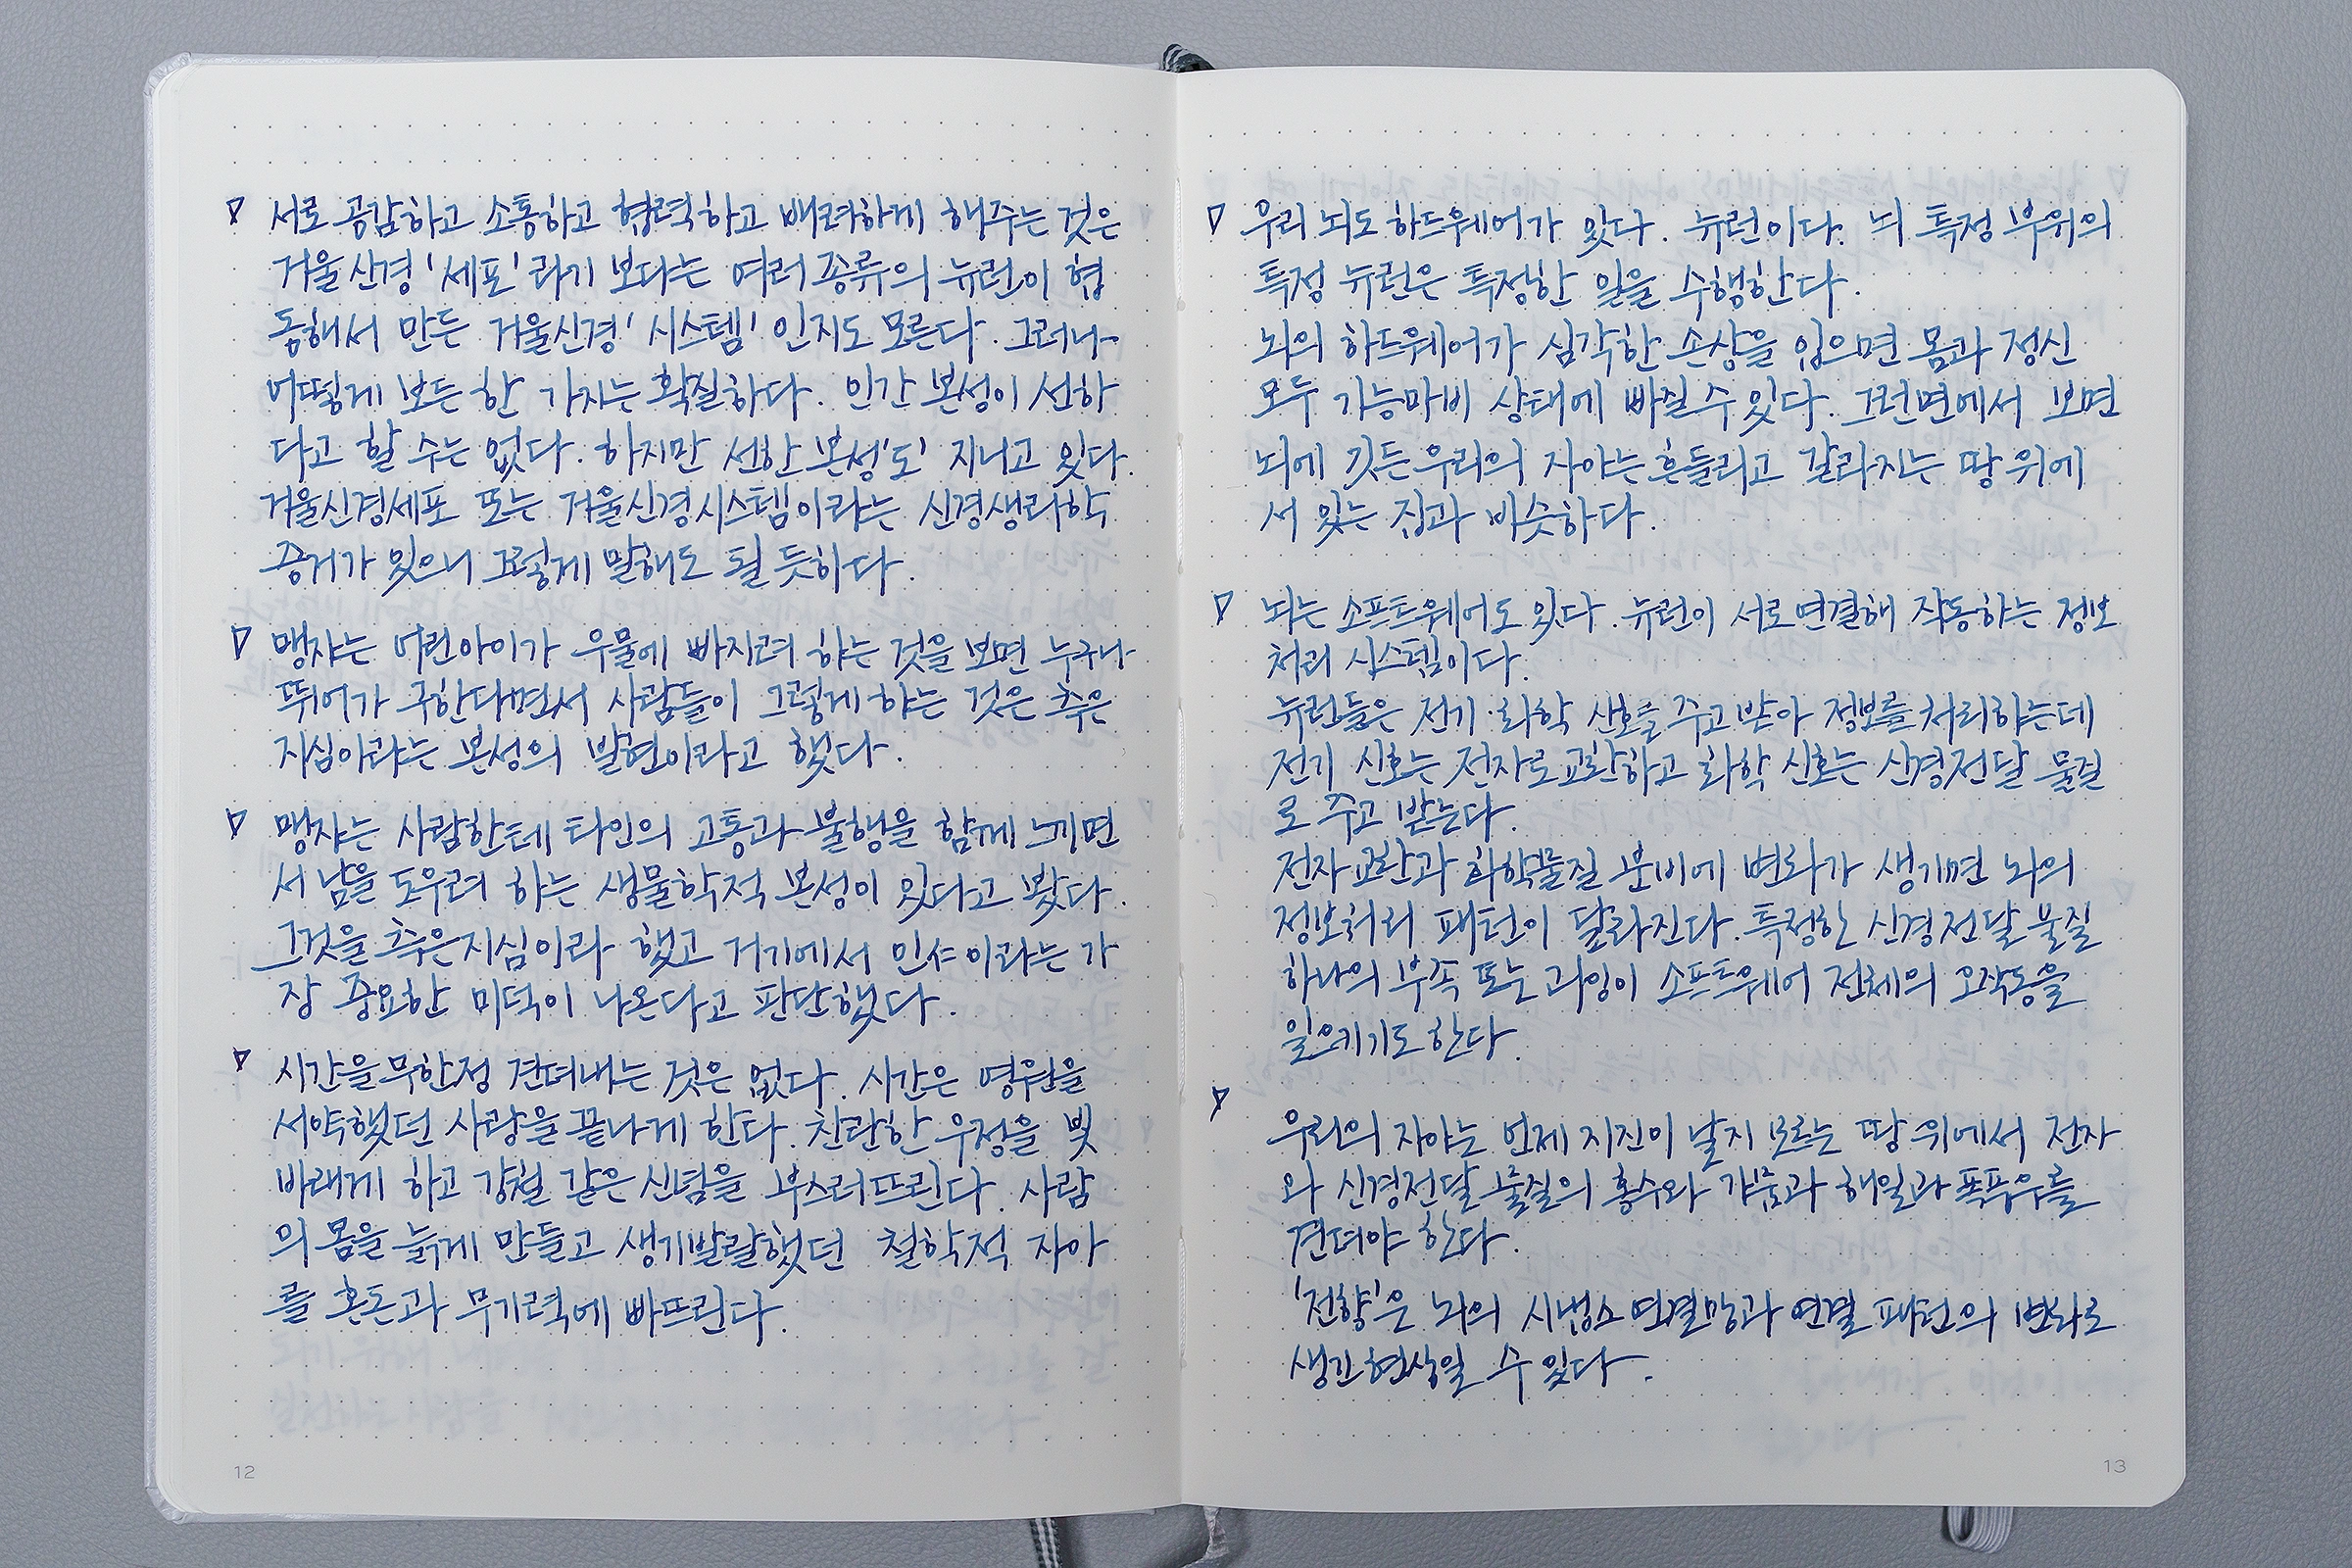 ▽ 서로 공감하고 소통하고 협력하고 배려하게 해주는 것은
거울신경 '세포'라기 보다는 여러 종류의 뉴런이 협
동해서 만든 거울신경 '시스템'인지도 모른다. 그러나
어떻게 보든 한 가지는 확실하다. 인간 본성이 선하
다고 할 수는 없다. 하지만 선한 본성'도' 지니고 있다.
거울신경세포 또는 거울신경시스템이라는 신경생리학
증거가 있으니 그렇게 말해도 될 듯하다.
▽ 맹자는 어린아이가 우물에 빠지려 하는 것을 보면 누구나
뛰어가 구한다면서 사람들이 그렇게 하는 것은 측은
지심이라는 본성의 발현이라고 했다.
▽ 맹자는 사람한테 타인의 고통과 불행을 함께 느끼면
서 남을 도우려 하는 생물학적 본성이 있다고 봤다.
그것을 측은지심이라 했고 거기에서 인仁이라는 가
장 중요한 미덕이 나온다고 판단했다.
▽ 시간을 무한정 견뎌내는 것은 없다. 시간은 영원을
서약했던 사랑을 끝나게 한다. 찬란한 우정을 빛
바래게 하고 강철 같은 신념을 부스러뜨린다. 사람
의 몸을 늙게 만들고 생기발랄했던 철학적 자아
를 혼돈과 무기력에 빠뜨린다.
12
▽ 우리 뇌도 하드웨어가 있다. 뉴런이다. 뇌 특정 부위의
특정 뉴런은 특정한 일을 수행한다.
뇌의 하드웨어가 심각한 손상을 입으면 몸과 정신
모두 기능마비 상태에 빠질 수 있다. 그런면에서 보면
뇌에 깃든 우리의 자아는 흔들리고 갈라지는 땅 위에
서 있는 집과 비슷하다.
▽ 뇌는 소프트웨어도 있다. 뉴런이 서로 연결해 작동하는 정보
처리 시스템이다.
뉴런들은 전기·화학 신호를 주고 받아 정보를 처리하는데
전기 신호는 전자로 교환하고 화학 신호는 신경전달 물질
로 주고 받는다.
전자 교환과 화학물질 분비에 변화가 생기면 뇌의
정보처리 패턴이 달라진다. 특정한 신경전달 물질
하나의 부족 또는 과잉이 소프트웨어 전체의 오작동을
일으키기도 한다.
▽
우리의 자아는 언제 지진이 날지 모르는 땅 위에서 전자
와 신경전달 물질의 홍수와 가뭄과 해일과 폭풍우를
견뎌야 한다.
'전향'은 뇌의 시냅스 연결망과 연결 패턴의 변화로
생긴 현상일 수 있다.
13